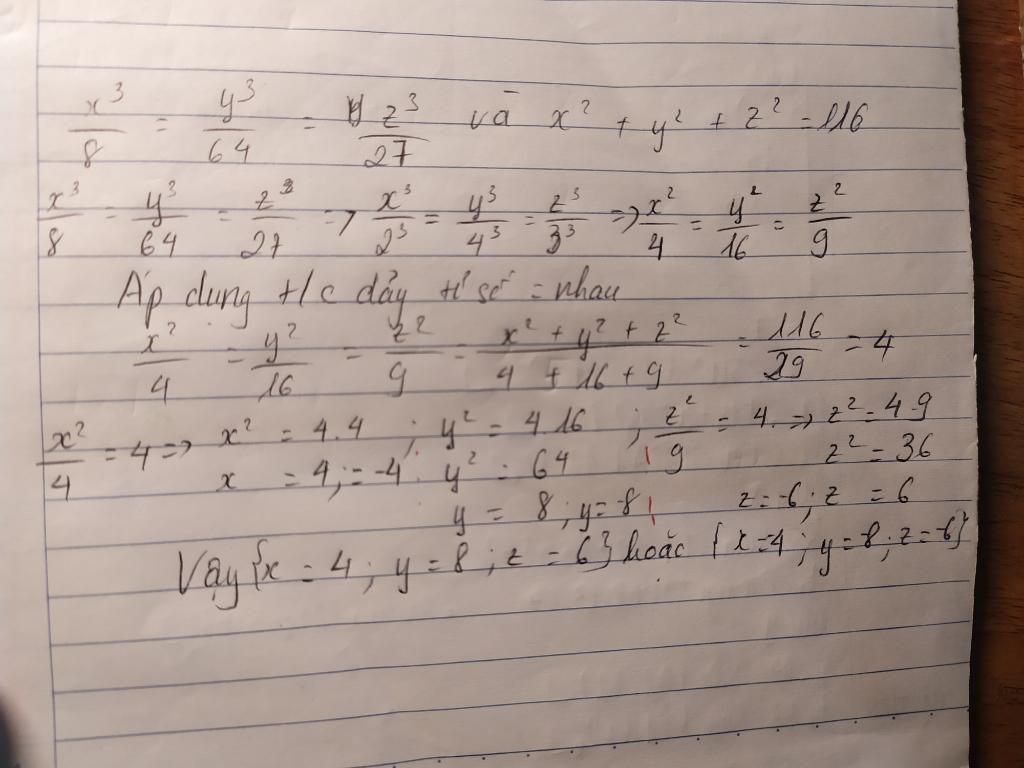 x³/8 = y³/64 = z³/27 và x² + y² + z² = 116
x³/8 = y³/64 = z³/27 => x³/2³ = y³/4³ = z³/3³ => x²/4 = y²/16 = z²/9
Áp dụng t/c dảy tỉ số = nhau
x²/4 = y²/16 = z²/9 = (x² + y² + z²)/(4 + 16 + 9) = 116/29 = 4
x²/4 = 4 => x² = 4.4 ; y² = 4.16 ; z²/9 = 4. => z² = 4.9
x = 4; = -4 y² = 64 z² = 36
y = 8 ; y = -8 z = -6 ; z = 6
Vậy {x = 4 ; y = 8 ; z = 6} hoặc {x = 4 ; y = -8 ; z = -6}